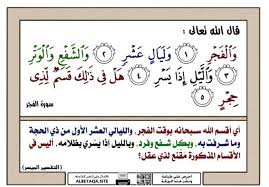 قال الله تعالى :
وَالْفَجْرِ ﴿١﴾ وَلَيَالٍ عَشْرٍ ﴿٢﴾ وَالشَّفْعِ وَالْوَتْرِ
﴿٣﴾ وَاللَّيْلِ إِذَا يَسْرِ ﴿٤﴾ هَلْ فِي ذَٰلِكَ قَسَمٌ لِّذِي
حِجْرٍ ﴿٥﴾
سورة الفجر
أي أقسم الله سبحانه بوقت الفجر، والليالي العشر الأول من ذي الحجة
وما شرفت به، وبكل شفع وفرد، وبالليل إذا يَسْري بظلامه، أليس في
الأقسام المذكورة مقنع لذي عقل؟
(التفسير الميسر)
البطاقة
ALBETAQA.SITE